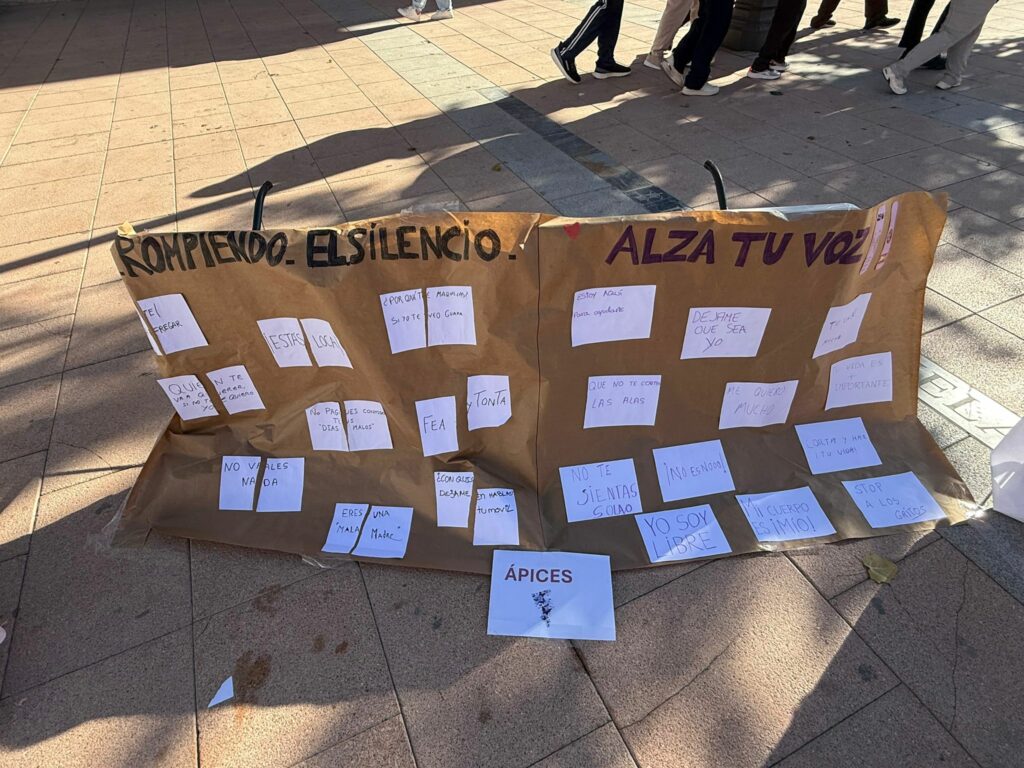 ROMPIENDO. EL SILENCIO.
FREGAR
ESTAS LOCA
¿POR QUÉ TE MAQUILLAS
SI YO TE VEO GUAPA
QUIEN TE
VA A QUERER,
SI NO TE QUIERO
YO
NO PAGUES CONMIGO
TUS
"DIAS MALOS"
FEA
Y TONTA
NO VALES
NADA
ERES UNA
"MALA MADRE"
¿CON QUIEN
HABLAS
DEJAME
tu movil
ALZA TU VOZ
ESTOY AQUÍ
para ayudarte
DEJAME
QUE SEA
YO
QUE NO TE CORTEN
LAS ALAS
ME QUIERO
MUCHO
VIDA ES
IMPORTANTE
NO TE
SIENTAS
SOLA
¡NO ES NO!
CORTA Y HAZ
TU VIDA!
YO SOY
LIBRE
MI CUERPO
ES MIO!
STOP
A LOS GRITOS
ÁPICES